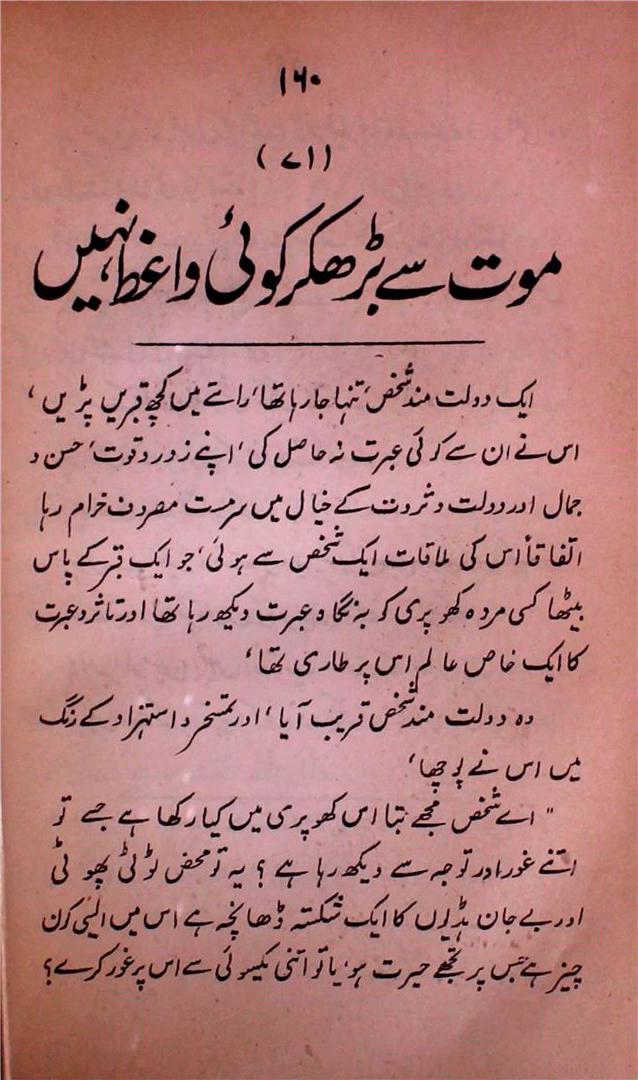 ۱۶۰
(۷۱)
موت سے بڑھکر کوئی واعظ نہیں
ایک دولت مند شخص، تنہا جا رہا تھا، راستے میں کچھ قبریں پڑیں،
اس نے ان سے کوئی عبرت نہ حاصل کی، اپنے زور و قوت، حسن و
جمال اور دولت و ثروت کے خیال میں سرمست مصروف خرام رہا
اتفاقاً اس کی ملاقات ایک شخص سے ہوئی، جو ایک قبر کے پاس
بیٹھا کسی مردہ کھوپری کو بہ نگاہ عبرت دیکھ رہا تھا اور تاثر و عبرت
کا ایک خاص عالم اس پر طاری تھا،
وہ دولت مند شخص قریب آیا، اور تمسخر و استہزاء کے رنگ
میں اس نے پوچھا،
" اے شخص مجھے بتا اس کھوپری میں کیا رکھا ہے جسے تو
اتنے غور اور توجہ سے دیکھ رہا ہے؟ یہ تو محض ٹوٹی پھوٹی
اور بے جان ہڈیوں کا ایک شکستہ ڈھانچہ ہے اس میں ایسی کون
چیز ہے جس پر تجھے حیرت ہو، یا تو اتنی یکسوئی سے اس پر غور کرے؟